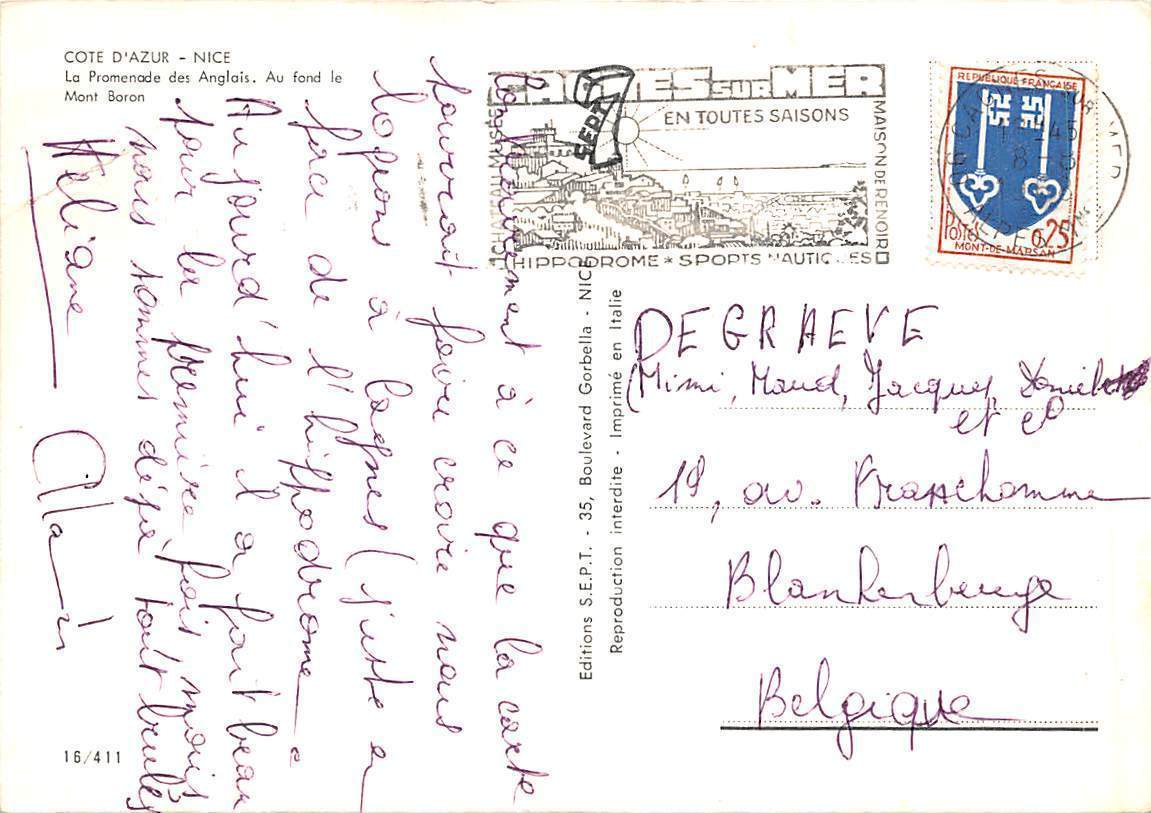 COTE D'AZUR - NICE
La Promenade des Anglais. Au fond le
Mont Boron
Contrairement à ce que la carte
pourrait faire croire nous
logeons à Cagnes (juste en
face de l'hippodrome
Aujourd'hui il a fait beau
pour la première fois mais
nous sommes déjà tout brulés
Héliane
Alain
16/411
Editions S.E.P.T. - 35, Boulevard Gorbella - NICE
Reproduction interdite - Imprimé en Italie
SEPT
CAGNES SUR MER
EN TOUTES SAISONS
MAISON DE RENOIR
HIPPODROME * SPORTS NAUTIQUES
REPUBLIQUE FRANÇAISE
POSTES 0,25
MONT-DE-MARSAN
DEGRAEVE
(Mimi, Maud, Jacques,
et Cº
19, av.
Blankenberge
Belgique